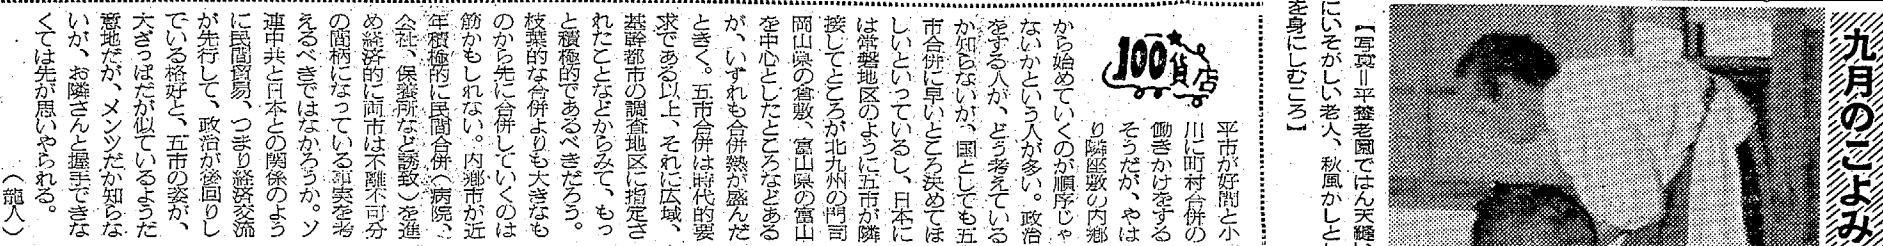 九月のこよみ
【写真＝平養老園ではん天縫い
にいそがしい老人、秋風かしと
を身にしむころ】
100貨店
平市が好間と小
川に町村合併の
働きかけをする
そうだが、やは
り隣座敷の内郷
から始めていくのが順序じゃ
ないかという人が多い。政治
をする人が、どう考えている
か知らないが、国としても五
市合併に早いところ決めてほ
しいといっているし、日本に
は常磐地区のように五市が隣
接してところが北九州の門司
岡山県の倉敷、富山県の富山
を中心としたところなどある
が、いずれも合併熱が盛んだ
ときく。五市合併は時代的要
求である以上、それに広域、
基幹都市の調査地区に指定さ
れたことなどからみて、もっ
と積極的であるべきだろう。
枝葉的な合併よりも大きなも
のから先に合併していくのは
筋かもしれない。内郷市が近
年積極的に民間合併（病院、
会社、保養所など誘致）を進
め経済的に両市は不離不可分
の間柄になっている事実を考
えるべきではなかろうか。ソ
連中共と日本との関係のよう
に民間貿易、つまり経済交流
が先行して、政治が後回りし
ている格好と、五市の姿が、
大ざっぱだが似ているようだ
意地だか、メンツだか知らな
いが、お隣さんと握手できな
くては先が思いやられる。
（龍人）